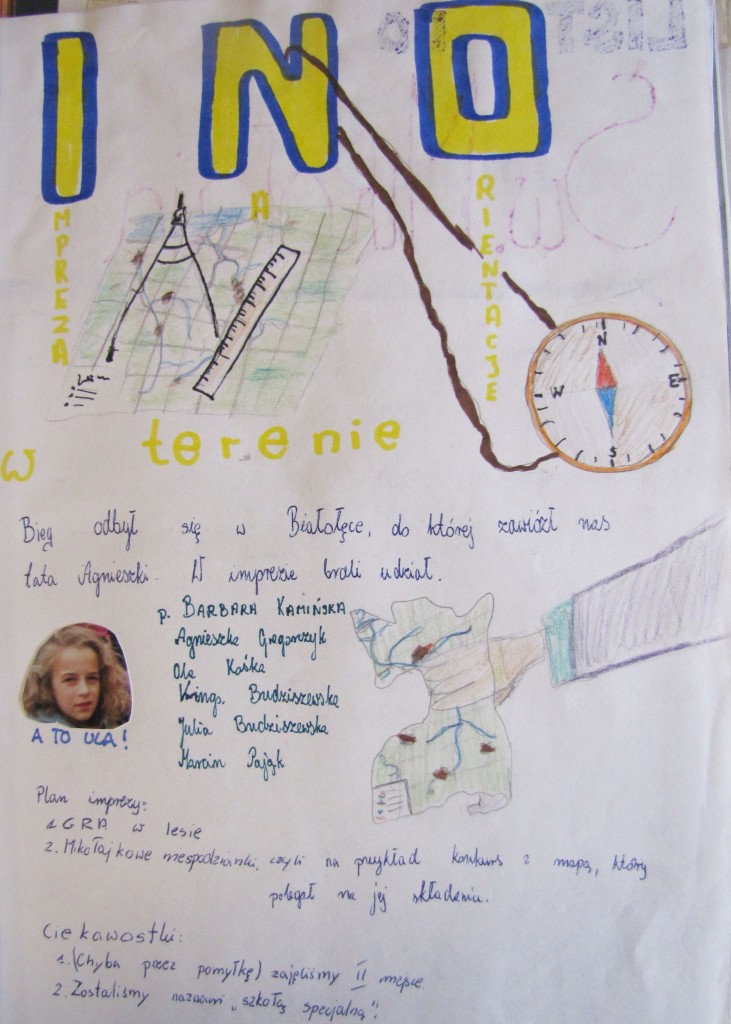 INO
IMPREZA
NA
ORIENTACJE
w terenie
N
W E
S
Bieg odbył się w Białołęce, do której zawiózł nas
tata Agnieszki. W imprezie brali udział.
p. BARBARA KAMIŃSKA
Agnieszka Gregorczyk
Ola Kośka
Kinga Budziszewska
Julia Budziszewska
Marcin Pająk
A TO ULA!
Plan imprezy:
1. GRA w lesie
2. Mikołajkowe niespodzianki, czyli na przykład konkurs z mapą, który
polegał na jej składaniu.
Ciekawostki:
1. (Chyba przez pomyłkę) zajęliśmy II miejsce.
2. Zostaliśmy nazwani "szkołą specjalną".